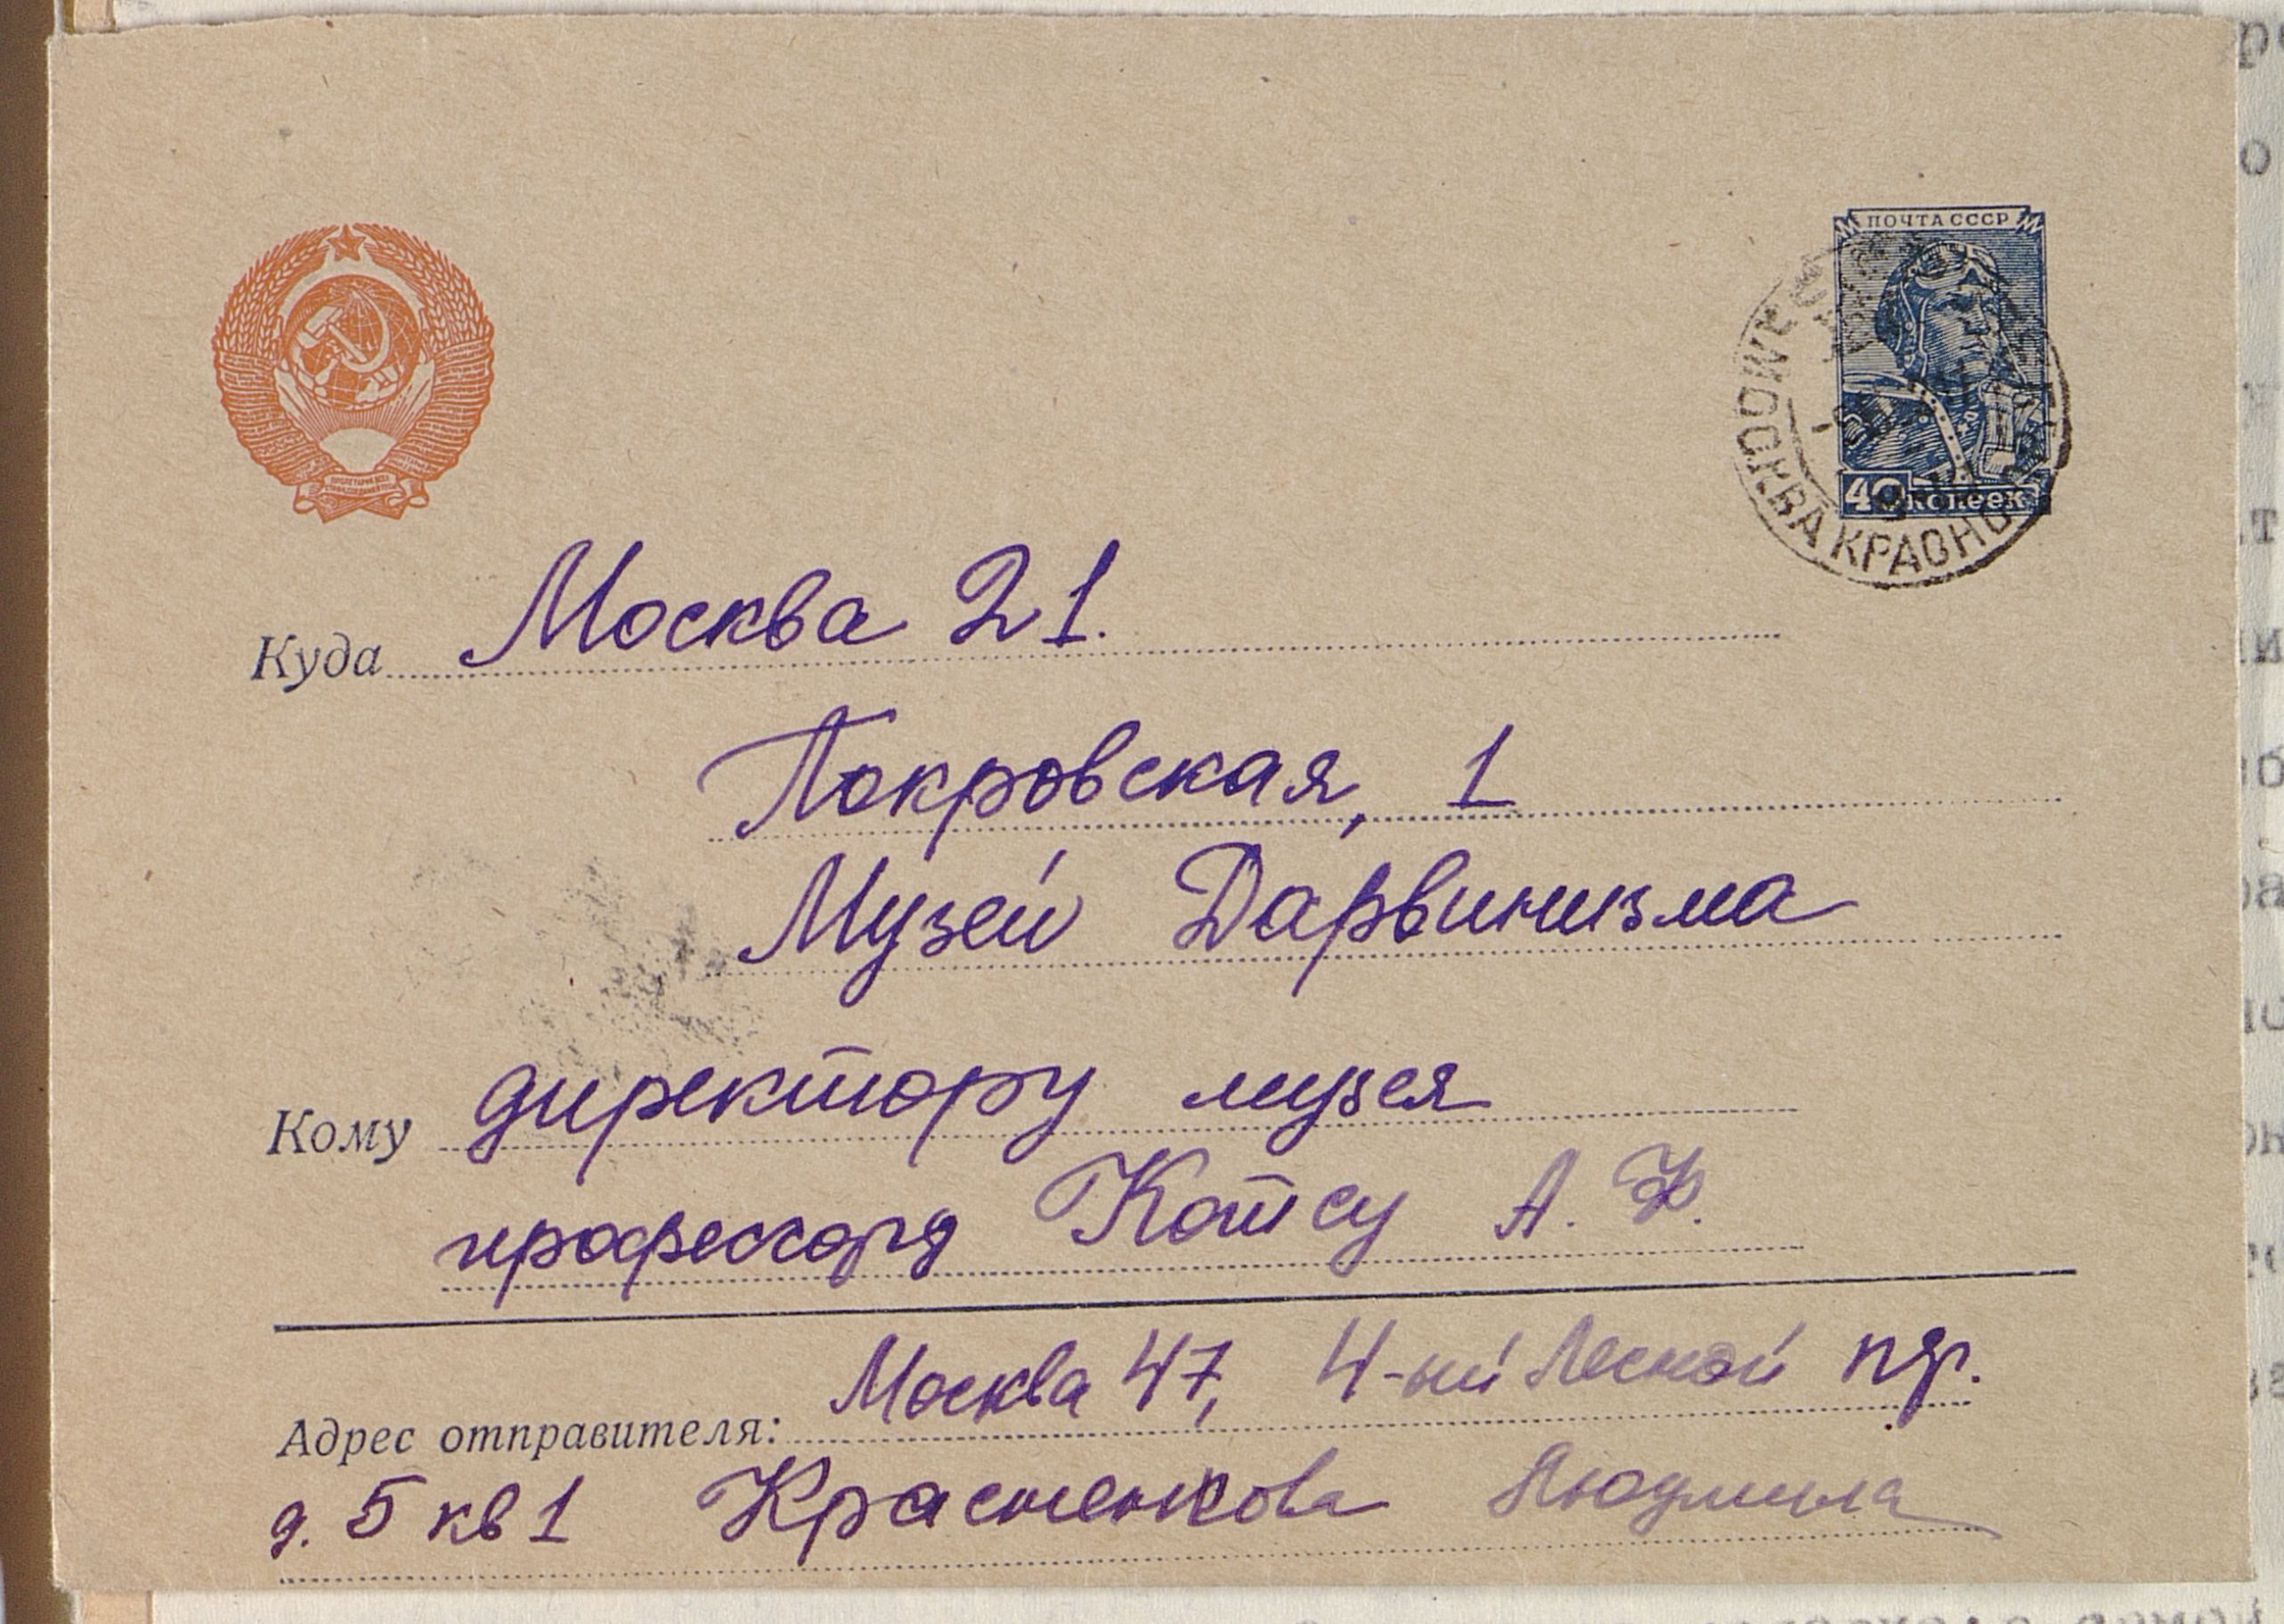 ПОЧТА СССР
40 копеек
МОСКВА КРАСНО
Куда Москва 21.
Покровская, 1
Музей Дарвинизма
Кому директору музея
профессору Котсу А. Ф.
Адрес отправителя: Москва 47, 4-ый Лесной пр.
д. 5 кв 1 Людмила